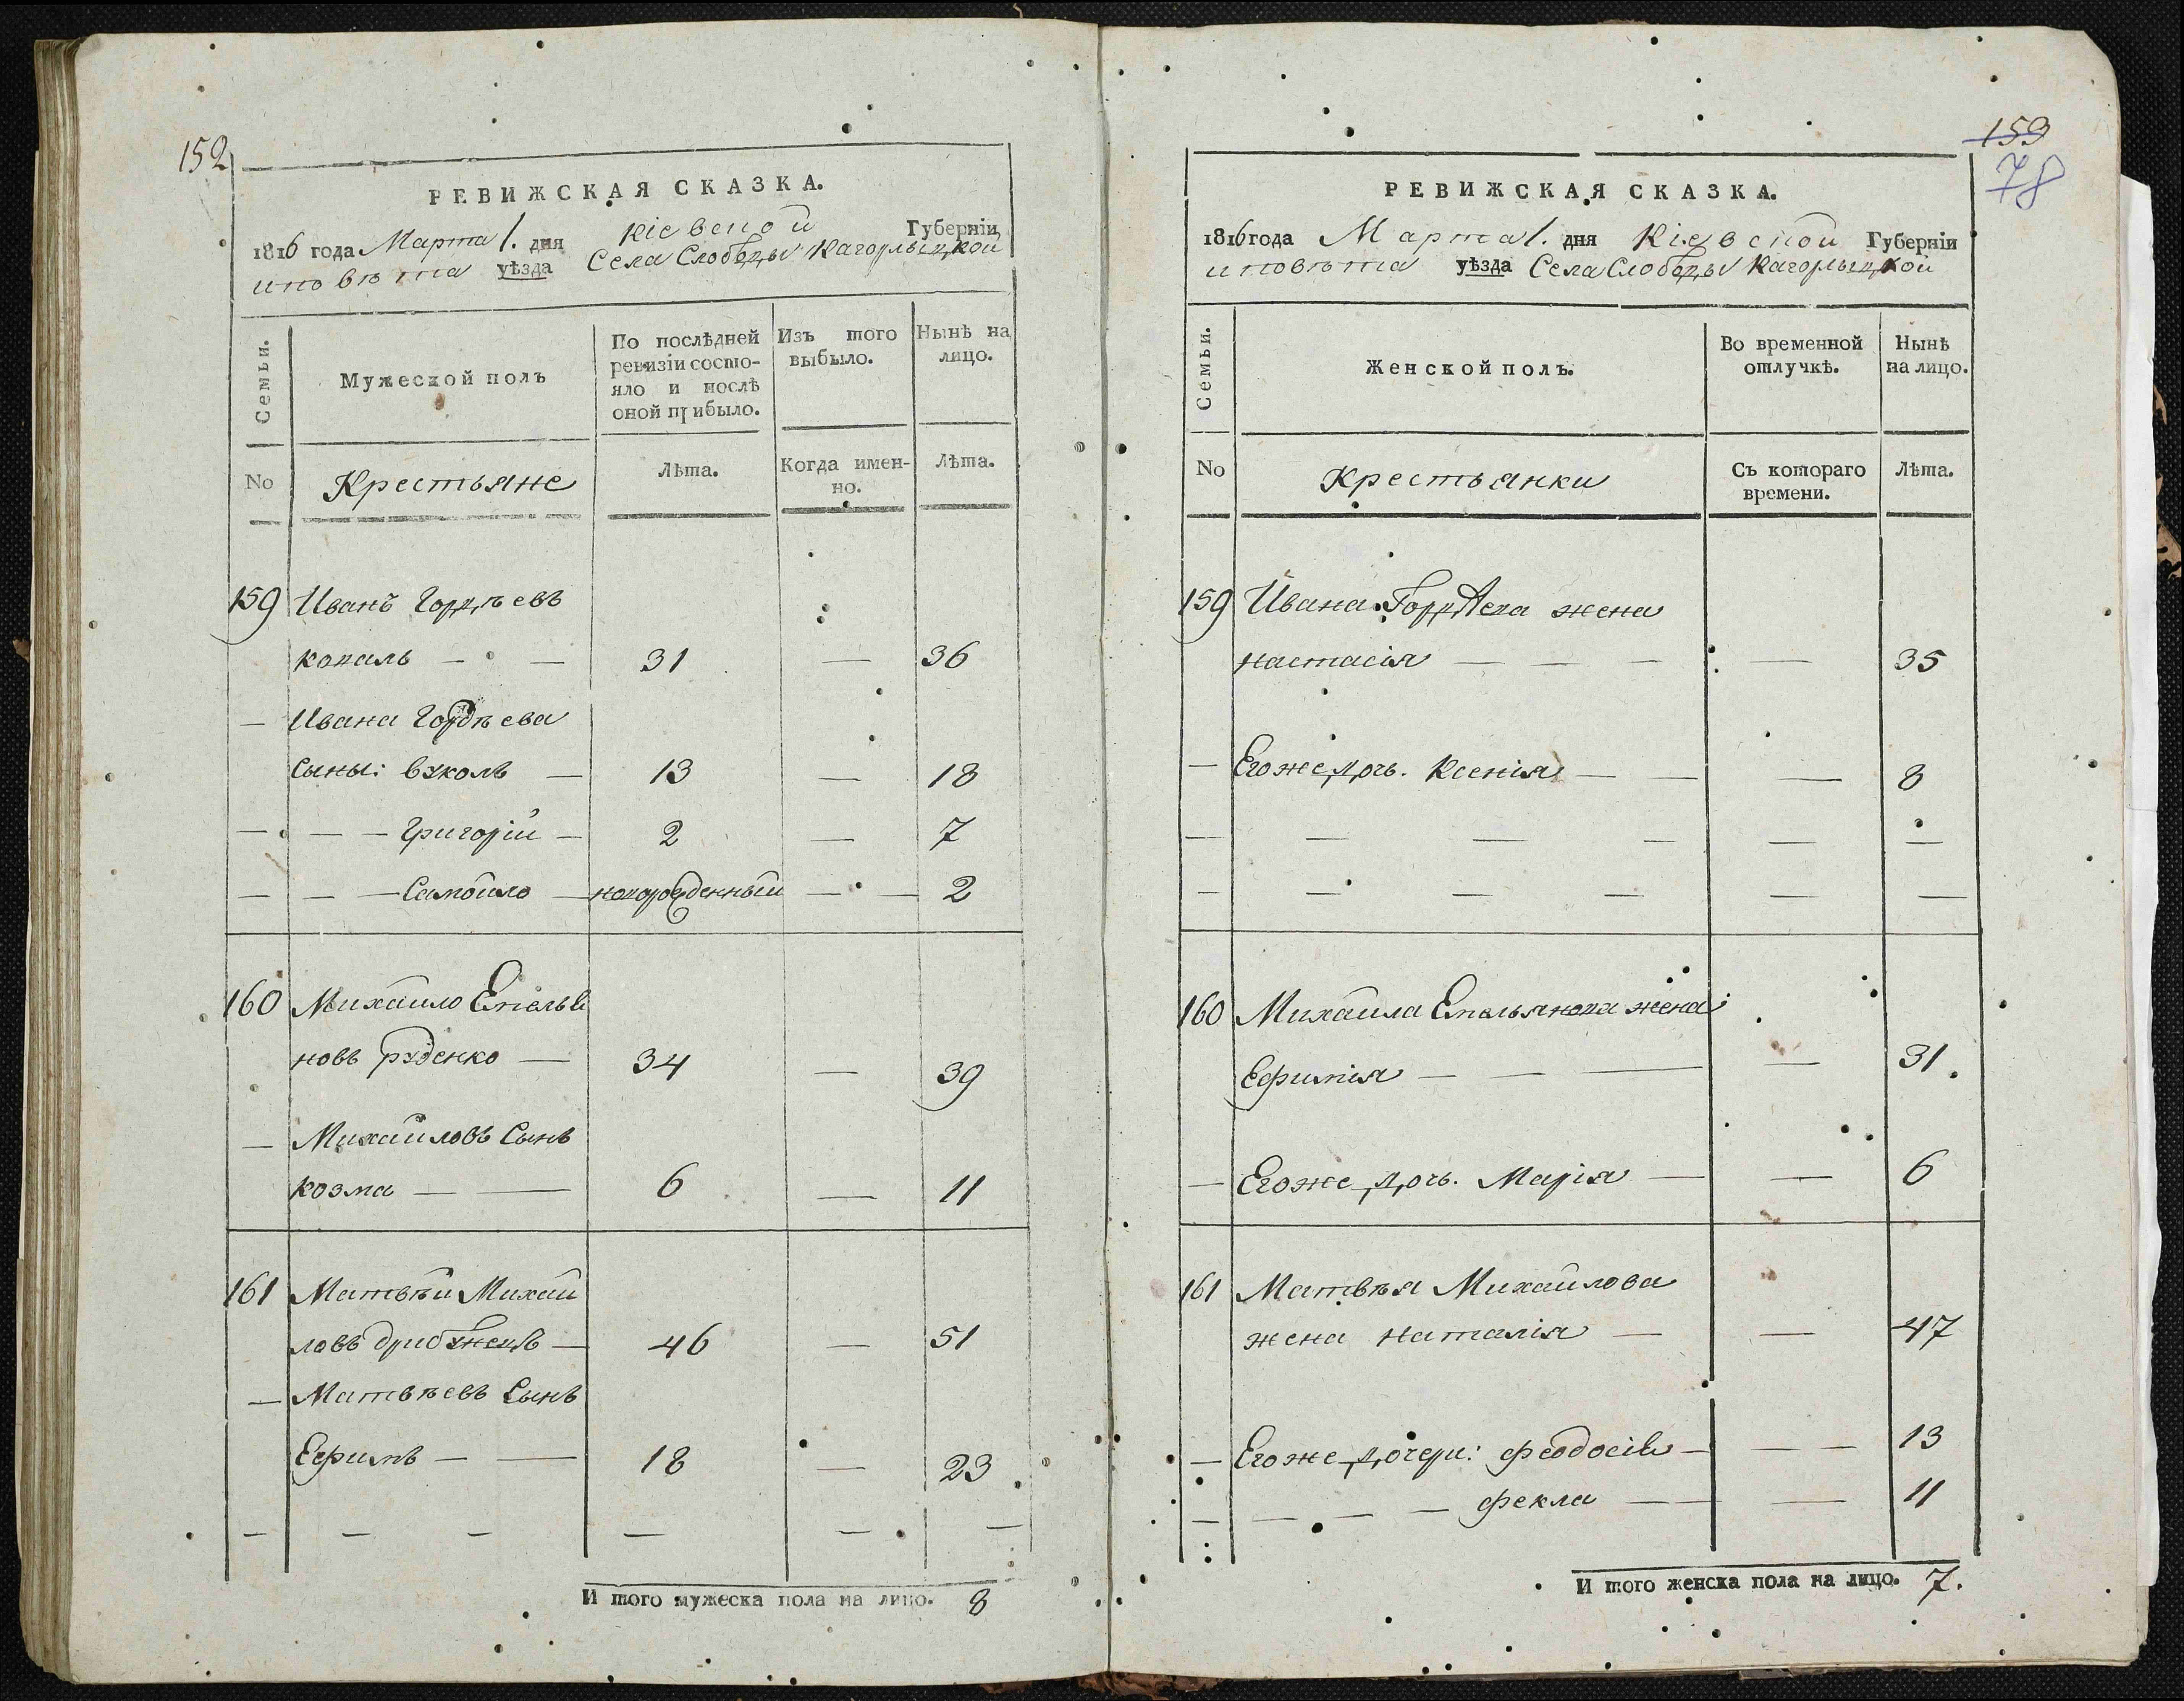 152
РЕВИЖСКАЯ СКАЗКА.
1816 года Марта 1. дня Кіевской Губерніи
и повѣта уѣзда Села Слободы Кагорлыцкой
Семьи.
Мужеской полъ
По послѣдней ревизіи состо-
яло и послѣ
оной прибыло.
Изъ того
выбыло.
Нынѣ на
лицо.
No
Крестьяне
Лѣта.
Когда имен-
но.
Лѣта.
159 Иванъ Гордѣевъ
коваль — — 31 — 36
— Ивана Гордѣева
Сыны: вуколъ — 13 — 18
— — — Григорій — 2 — 7
— — — Самойло — новорожденный — — 2
160 Михайло Емелья
новъ руденко — 34 — 39
— Михайловъ Сынъ
козма — — 6 — 11
161 Матвѣй Михай
ловъ — 46 — 51
— Матвѣевъ Сынъ
Ефимъ — — 18 — 23
И того мужеска пола на лицо. 8
153
78
РЕВИЖСКАЯ СКАЗКА.
1816 года Марта 1. дня Кіевской Губерніи
и повѣта уѣзда Села Слободы Кагорлыцкой
Семьи.
Женской полъ.
Во временной
отлучкѣ.
Нынѣ
на лицо.
No
Крестьянки
Съ котораго
времени.
Лѣта.
159 Ивана Гордѣева жена
настасія — — — — 35
— Егоже дочь. Ксенія — — — 8
160 Михайла Емельянова жена
Ефимія — — — — 31.
— Егоже дочь. Марія — — 6
161 Матвѣя Михайлова
жена наталія — — 47
— Егоже дочери: феодосія — — — 13
— — — — фекла — — — 11
И того женска пола на лицо. 7.